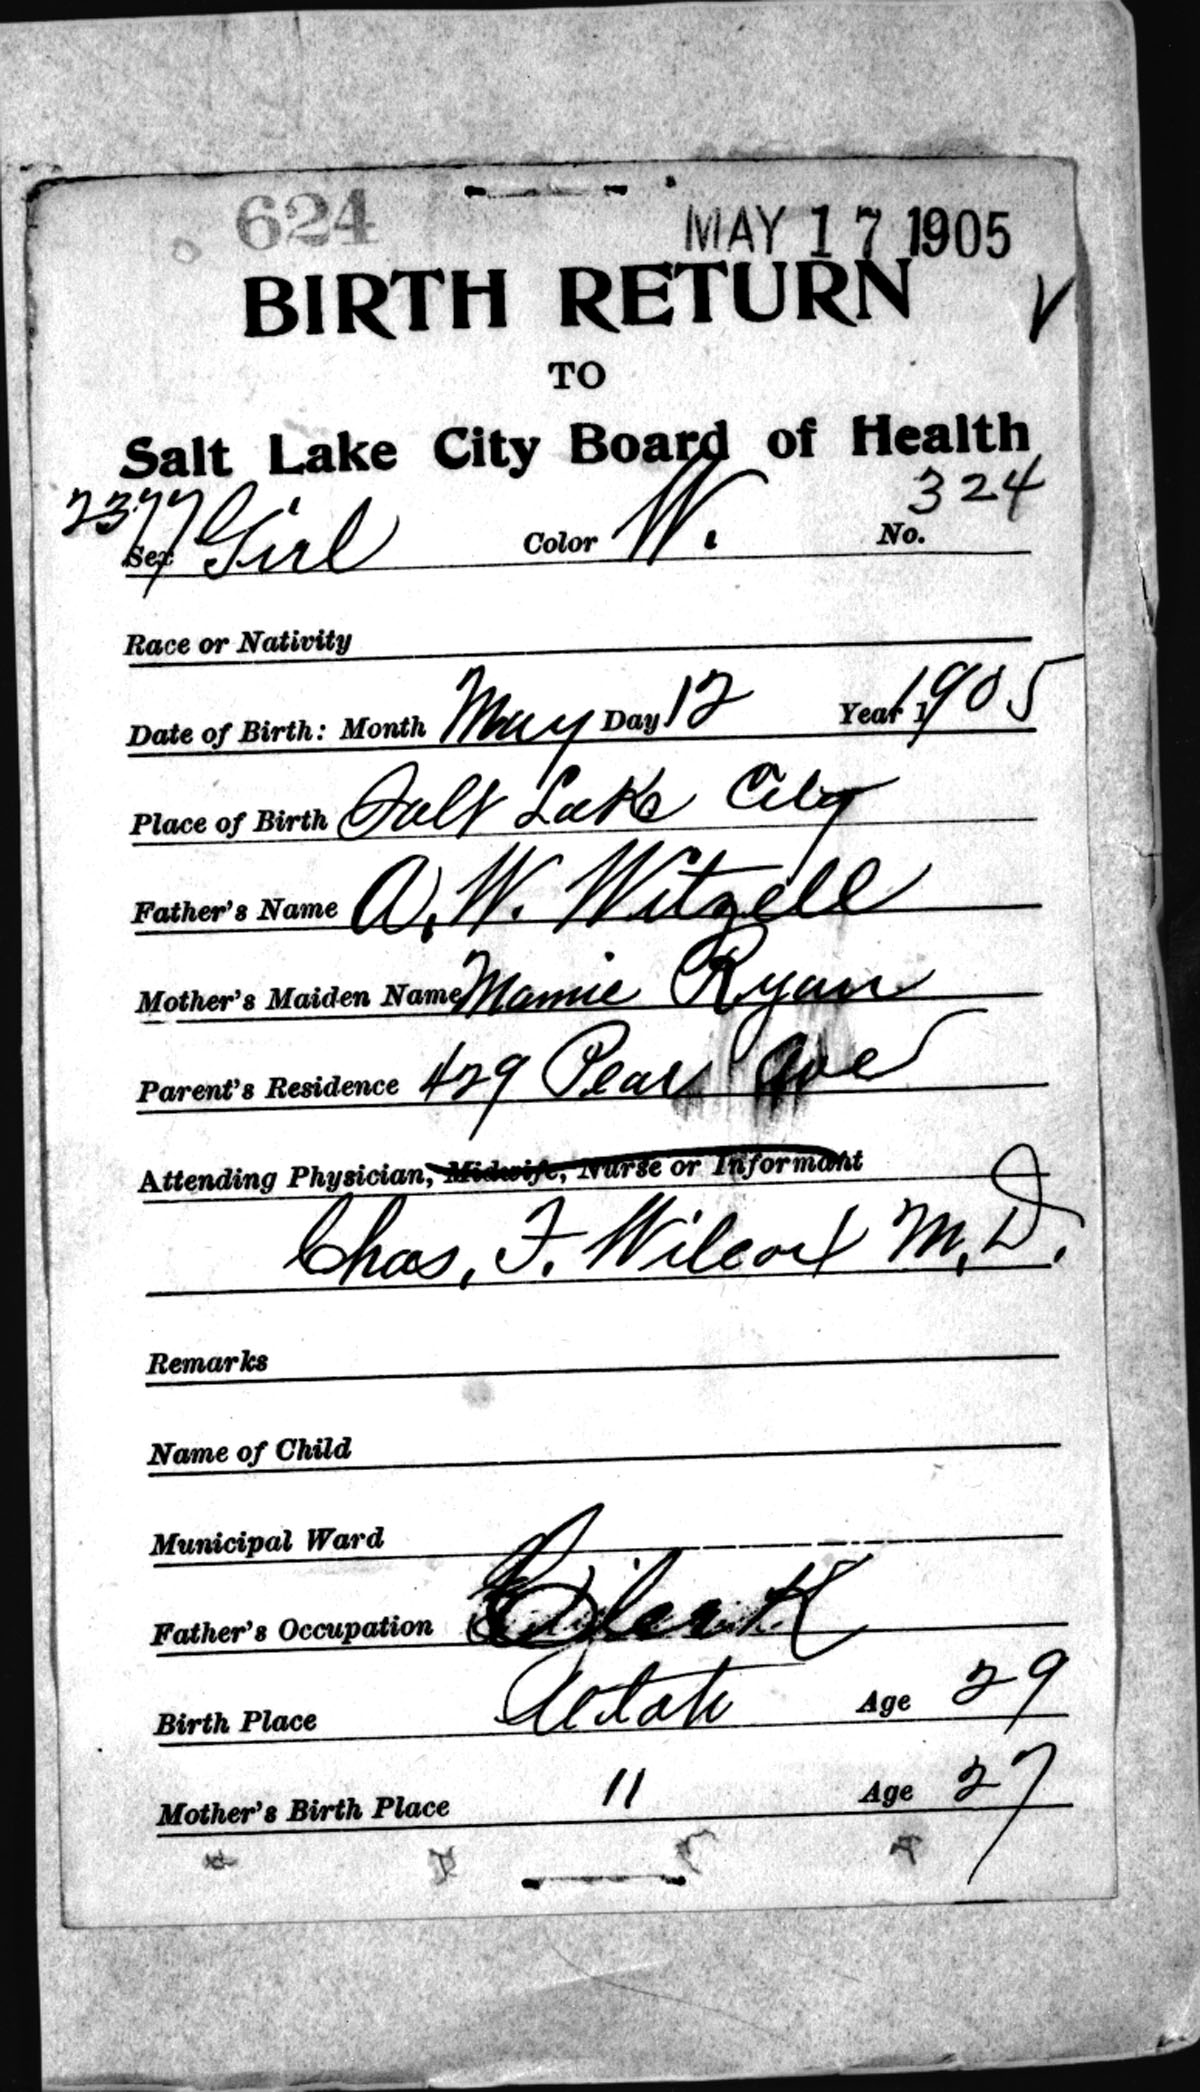 624
MAY 17 1905
BIRTH RETURN
TO
Salt Lake City Board of Health
2377
Sex Girl Color W. No. 324
Race or Nativity
Date of Birth: Month May Day 12 Year 1905
Place of Birth Salt Lake City
Father's Name A. W. Witzell
Mother's Maiden Name Mamie Ryan
Parent's Residence 429 Pear Ave
Attending Physician, Midwife, Nurse or Informant
Chas. F. Wilcox M.D.
Remarks
Name of Child
Municipal Ward
Father's Occupation Clerk
Birth Place Utah Age 29
Mother's Birth Place " Age 27